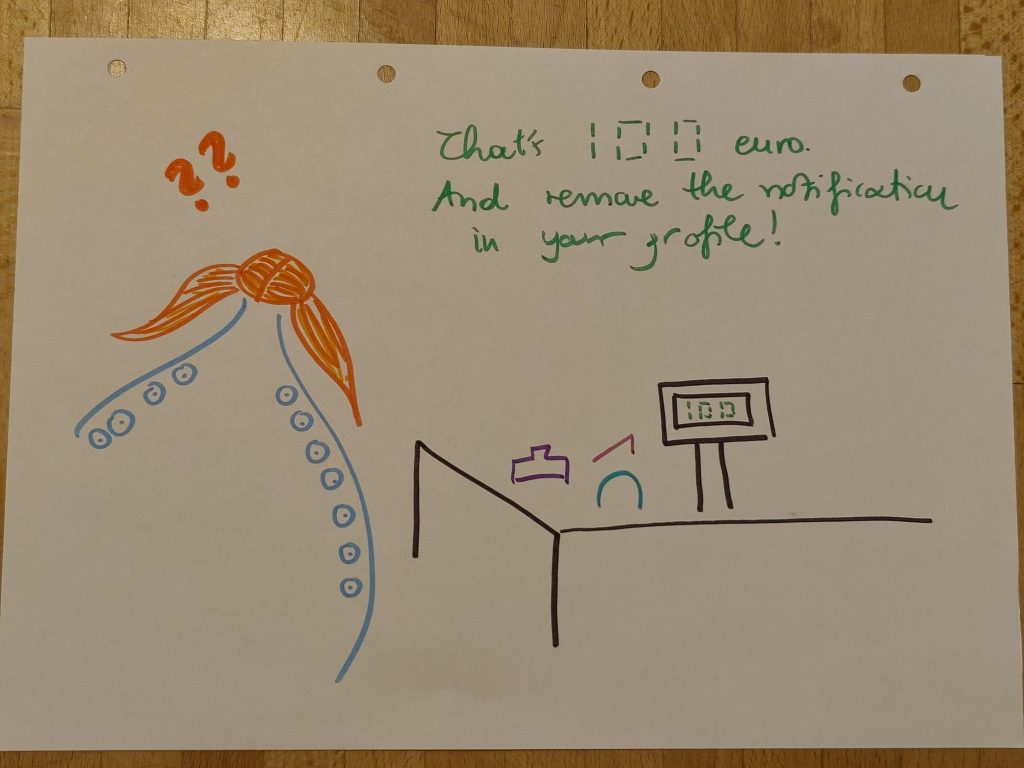 ??
That's 100 euro.
And remove the notification
in your profile!
100